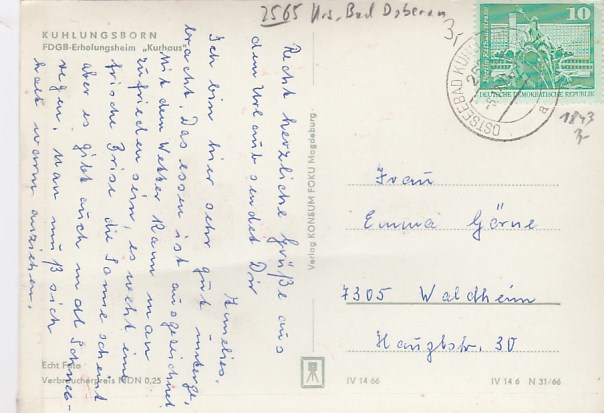 2565 Krs. Bad Doberan
KUHLUNGSBORN
FDGB-Erholungsheim „Kurhaus"
10
DEUTSCHE DEMOKRATISCHE REPUBLIK
OSTSEEBAD KÜHL
1843
Recht herzliche Grüße aus
dem Urlaub sendet Dir
Annelies.
Ich bin hier sehr gut unterge-
bracht. Das essen ist ausgezeichnet
Mit dem Wetter kann man
zufrieden sein, es weht eine
frische Brise die Sonne scheint
aber es gibt auch mal Schnee-
regen. Man muß sich
halt warm anziehen.
Verlag KONSUM FOKU Magdeburg
Frau
Emma Görne
7305 Waldheim
Hauptstr. 30
Echt Foto
Verbraucherpreis MDN 0,25
IV 14 66
IV 14 6 N 31/66